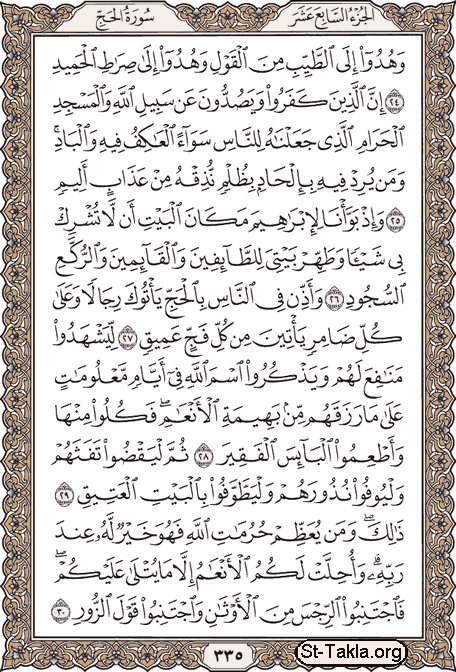 سُورَةُ الحَجِّ الجُزْءُ السَّابِعَ عَشَرَ
وَهُدُوٓا۟ إِلَى ٱلطَّيِّبِ مِنَ ٱلْقَوْلِ وَهُدُوٓا۟ إِلَىٰ صِرَٰطِ ٱلْحَمِيدِ
٢٤ إِنَّ ٱلَّذِينَ كَفَرُوا۟ وَيَصُدُّونَ عَن سَبِيلِ ٱللَّهِ وَٱلْمَسْجِدِ
ٱلْحَرَامِ ٱلَّذِى جَعَلْنَٰهُ لِلنَّاسِ سَوَآءً ٱلْعَٰكِفُ فِيهِ وَٱلْبَادِ ۚ
وَمَن يُرِدْ فِيهِ بِإِلْحَادٍۭ بِظُلْمٍ نُّذِقْهُ مِنْ عَذَابٍ أَلِيمٍ
٢٥ وَإِذْ بَوَّأْنَا لِإِبْرَٰهِيمَ مَكَانَ ٱلْبَيْتِ أَن لَّا تُشْرِكْ
بِى شَيْـًٔا وَطَهِّرْ بَيْتِىَ لِلطَّآئِفِينَ وَٱلْقَآئِمِينَ وَٱلرُّكَّعِ
ٱلسُّجُودِ ٢٦ وَأَذِّن فِى ٱلنَّاسِ بِٱلْحَجِّ يَأْتُوكَ رِجَالًا وَعَلَىٰ
كُلِّ ضَامِرٍ يَأْتِينَ مِن كُلِّ فَجٍّ عَمِيقٍ ٢٧ لِّيَشْهَدُوا۟
مَنَٰفِعَ لَهُمْ وَيَذْكُرُوا۟ ٱسْمَ ٱللَّهِ فِىٓ أَيَّامٍ مَّعْلُومَٰتٍ
عَلَىٰ مَا رَزَقَهُم مِّنۢ بَهِيمَةِ ٱلْأَنْعَٰمِ ۖ فَكُلُوا۟ مِنْهَا
وَأَطْعِمُوا۟ ٱلْبَآئِسَ ٱلْفَقِيرَ ٢٨ ثُمَّ لْيَقْضُوا۟ تَفَثَهُمْ
وَلْيُوفُوا۟ نُذُورَهُمْ وَلْيَطَّوَّفُوا۟ بِٱلْبَيْتِ ٱلْعَتِيقِ ٢٩
ذَٰلِكَ وَمَن يُعَظِّمْ حُرُمَٰتِ ٱللَّهِ فَهُوَ خَيْرٌ لَّهُۥ عِندَ
رَبِّهِۦ ۗ وَأُحِلَّتْ لَكُمُ ٱلْأَنْعَٰمُ إِلَّا مَا يُتْلَىٰ عَلَيْكُمْ ۖ
فَٱجْتَنِبُوا۟ ٱلرِّجْسَ مِنَ ٱلْأَوْثَٰنِ وَٱجْتَنِبُوا۟ قَوْلَ ٱلزُّورِ ٣٠
٣٣٥
St-Takla.org